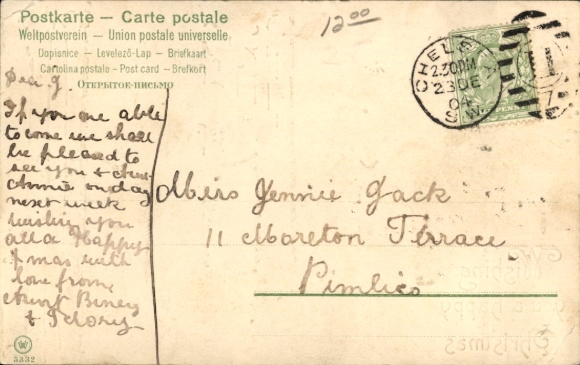 Postkarte — Carte postale
Weltpostverein — Union postale universelle
Dopisnice — Levelező-Lap — Briefkaart
Cartolina postale - Post card — Brefkort
Открытое письмо
12.00
CHELSEA
2.30 PM
23 DE
04
S.W.
Dear J.
If you are able
to come we shall
be pleased to
see you &
Annie on day
next week
wishing you
all a Happy
Xmas with
love from
Aunt
&
Miss Jennie Jack
11 Moreton Terrace
Pimlico
Wishing
Happy
Christmas
5332